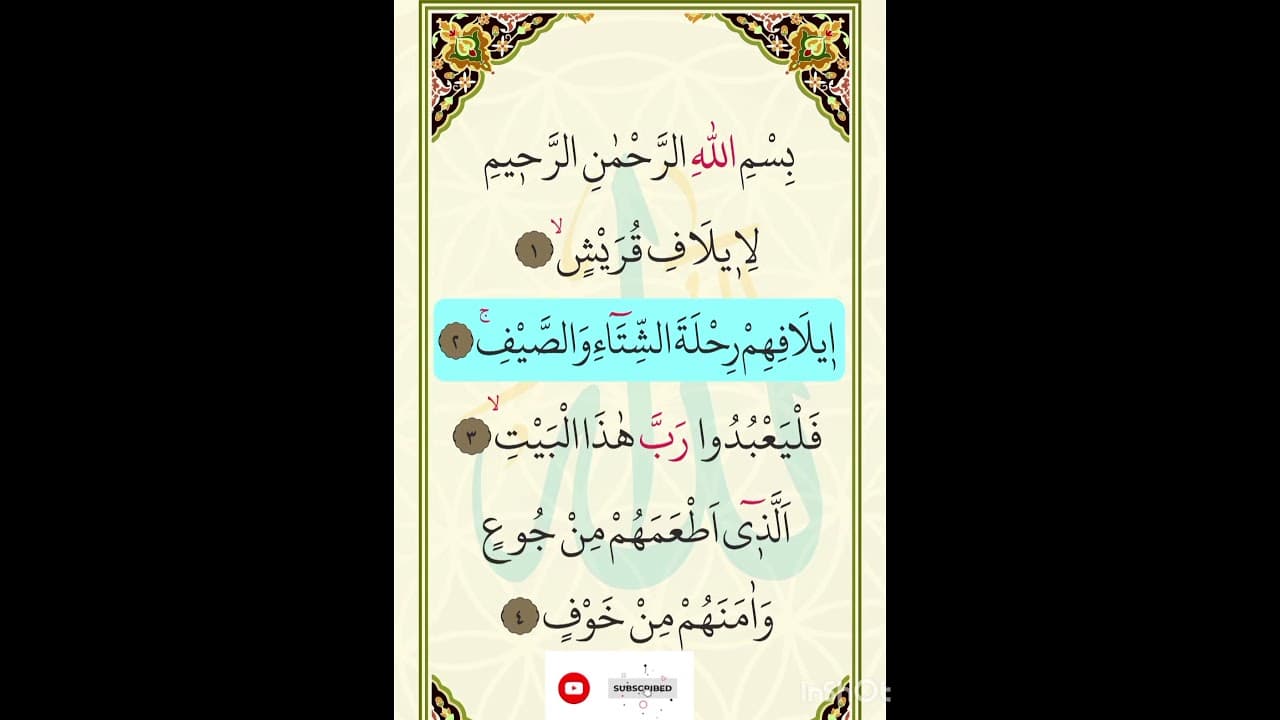 بِسْمِ اللّٰهِ الرَّحْمٰنِ الرَّحٖيمِ
لِاٖيلَافِ قُرَيْشٍۙ ١
اٖيلَافِهِمْ رِحْلَةَ الشِّتَٓاءِ وَالصَّيْفِۚ ٢
فَلْيَعْبُدُوا رَبَّ هٰذَا الْبَيْتِۙ ٣
اَلَّذٖٓى اَطْعَمَهُمْ مِنْ جُوعٍ
وَاٰمَنَهُمْ مِنْ خَوْفٍ ٤
SUBSCRIBED
InShOt